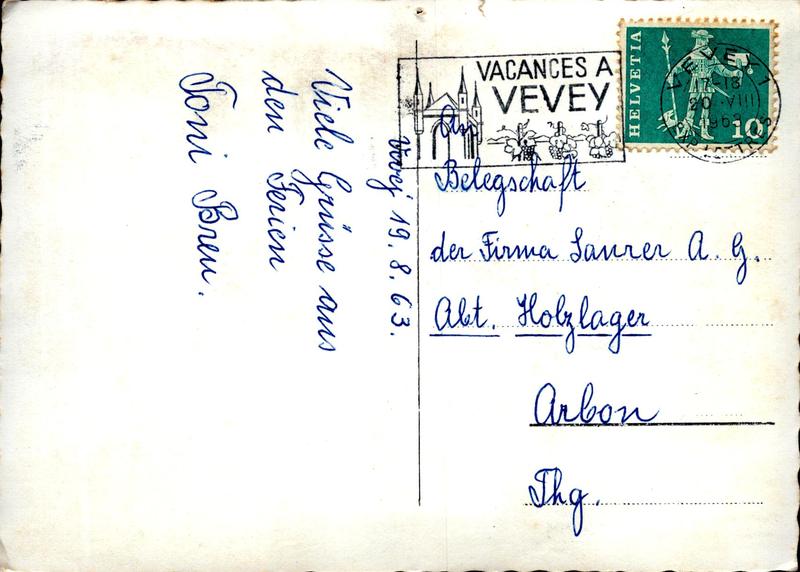 Vevey 19.8.63.
Viele Grüsse aus
den Ferien
Toni Breu.
VACANCES A
VEVEY
HELVETIA
10
VEVEY 1
20.VIII
1963
An
Belegschaft
der Firma Saurer A.G.
Abt. Holzlager
Arbon
Thg.